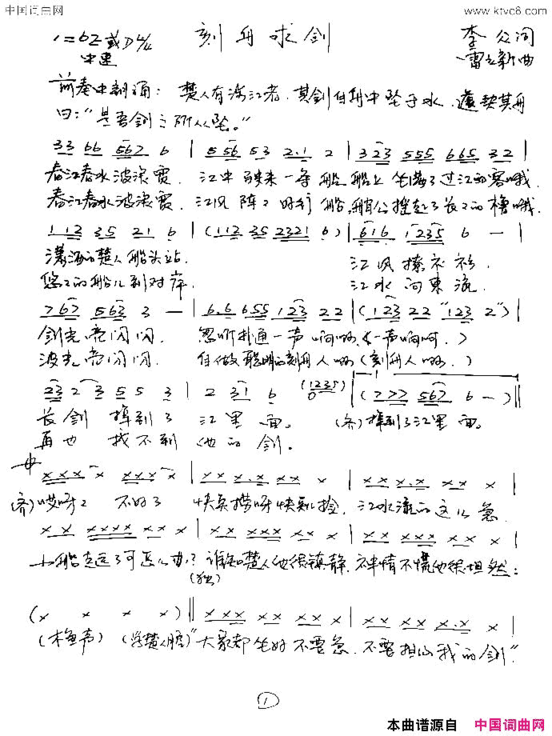 中国词曲网
www.ktvc8.com
1=bE或D 4/4
刻舟求剑
李众词
中速
雷立新曲
前奏中朗诵：楚人有涉江者，其剑自舟中坠于水，遽契其舟
曰："是吾剑之所从坠。"
3 3 6 6 5 6 7 6 | 5 5 6 5 3 2·1 2 | 3 2 3 5 5 5 6 6 5 3 2 |
春江春水波浪宽，江中驶来一条船，船上坐满了过江的客哦。
春江春水波浪宽，江风阵阵好行船，船公摇起了长长的橹哦。
1 1 2 3 5 2 1 6 | (1 1 2 3 5 2 3 2 1 6) | 6 1 6 1 2 3 5 6 - |
潇洒的楚人船头站，江风撩衣衫。
悠悠的船儿到对岸，江水向东流。
7 6 7 5 6 3 3 - | 6·6 6 5 5 1 2 3 2 2 | (1 2 3 2 2 "1 2 3 2") |
剑光亮闪闪，忽听扑通一声响啊呀(一声响啊，)
波光亮闪闪，自做聪明的刻舟人呀(刻舟人呀，)
2 3 2 3 5 5 3 | 2 3 1 6 (1 2 3 5) 0 | (7 7 7 5 6 7 6 -) ‖
长剑掉到了江里面。(齐)掉到了江里面。
再也找不到他的剑。
x x x x x x x | x x x·x x x x | x x x·x x x x |
(齐)哎呀呀不好了快点捞呀快点捡，江水流的这么急，
x x x x x x x x x | x x x x x x x x | x x x x x x x x x |
小船走远了可怎么办？谁知楚人他很镇静，神情不慌他很坦然：
(独)
(x x x x) ‖ x x x x x x x x | x x x x x x·x x |
(木鱼声) (学楚人腔)"大家都坐好不要急，不要担心我的剑"
①
本曲谱源自 中国词曲网